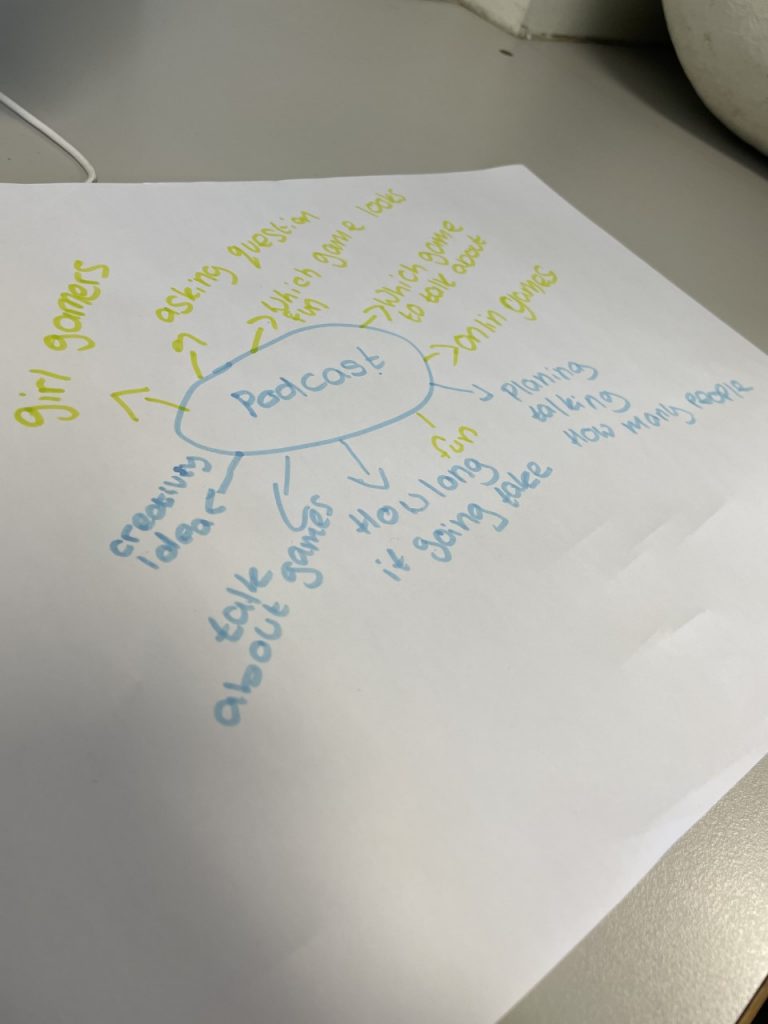 Podcast
girl gamers
asking question
Which game looks
fun
Which game
to talk about
onlin games
Planing
talking
How many people
fun
How long
it going take
talk
about games
creativity
idea